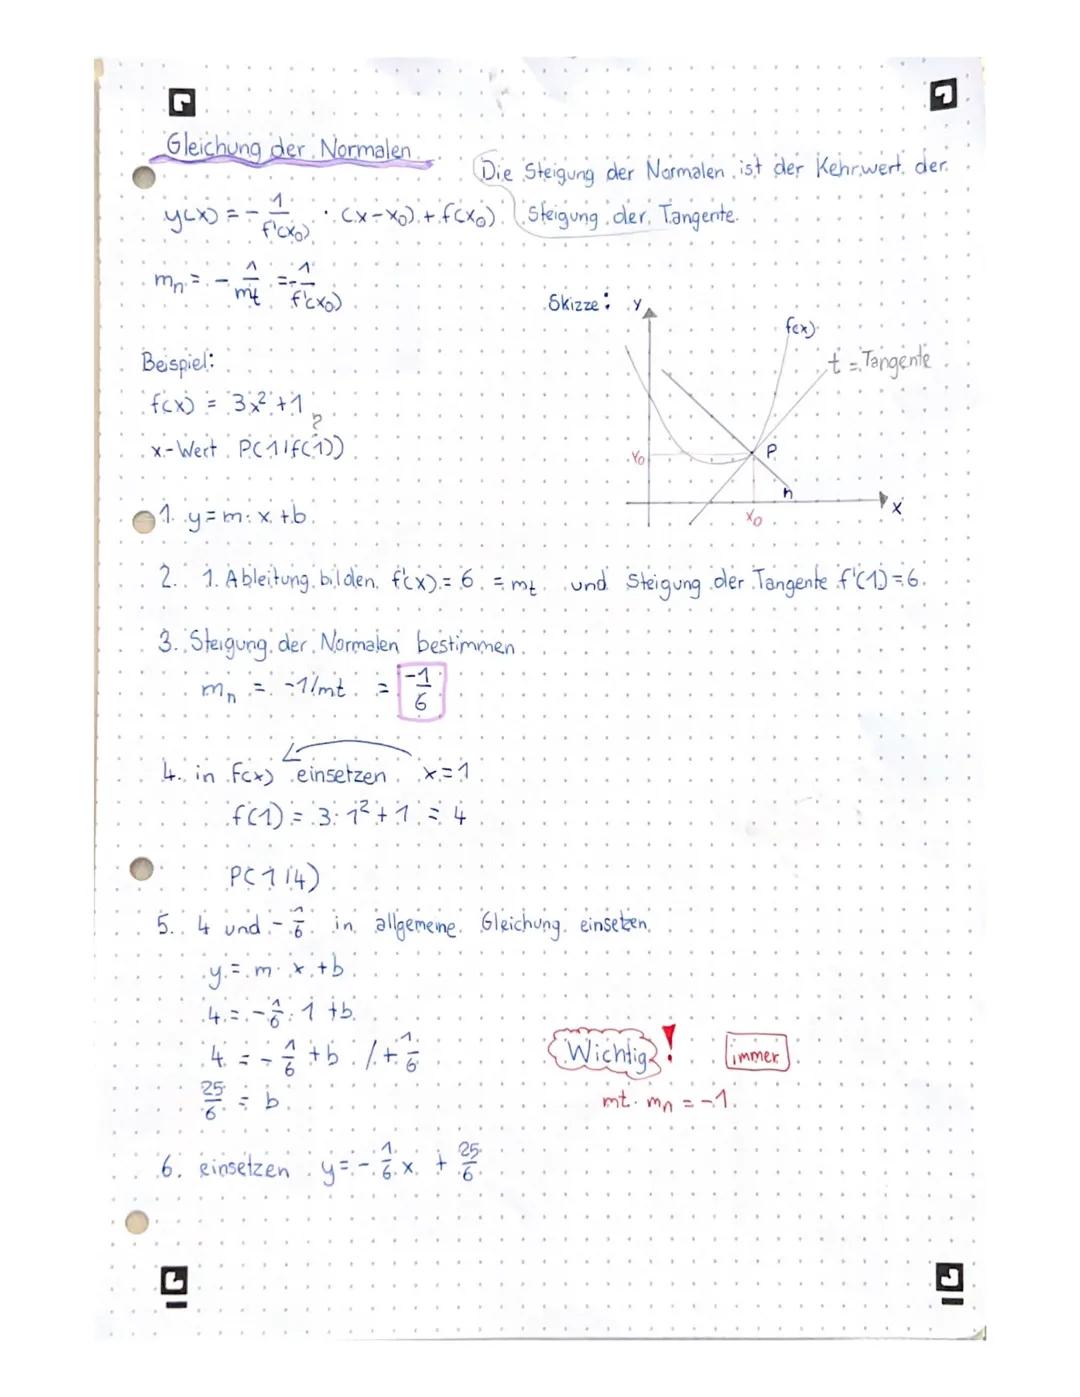 Gleichung der Normalen
Die Steigung der Normalen ist der Kehrwert der
Steigung der Tangente.
y(x) = - 1/f'(x₀) · (x-x₀) + f(x₀)
mₙ = - 1/mt = - 1/f'(x₀)
Skizze:
y
f(x)
t = Tangente
y₀
P
n
x
x₀
Beispiel:
f(x) = 3x² + 1
?
x-Wert P(1|f(1))
1. y = m · x + b
2. 1. Ableitung bilden f'(x) = 6 = mt und Steigung der Tangente f'(1) = 6
3. Steigung der Normalen bestimmen
mₙ = -1/mt = -1/6
4. in f(x) einsetzen x = 1
f(1) = 3 · 1² + 1 = 4
P(1|4)
5. 4 und - 1/6 in allgemeine Gleichung einsetzen
y = m · x + b
4 = - 1/6 · 1 + b
4 = - 1/6 + b /+ 1/6
25/6 = b
Wichtig !
immer
mt · mₙ = -1
6. einsetzen y = - 1/6 x + 25/6